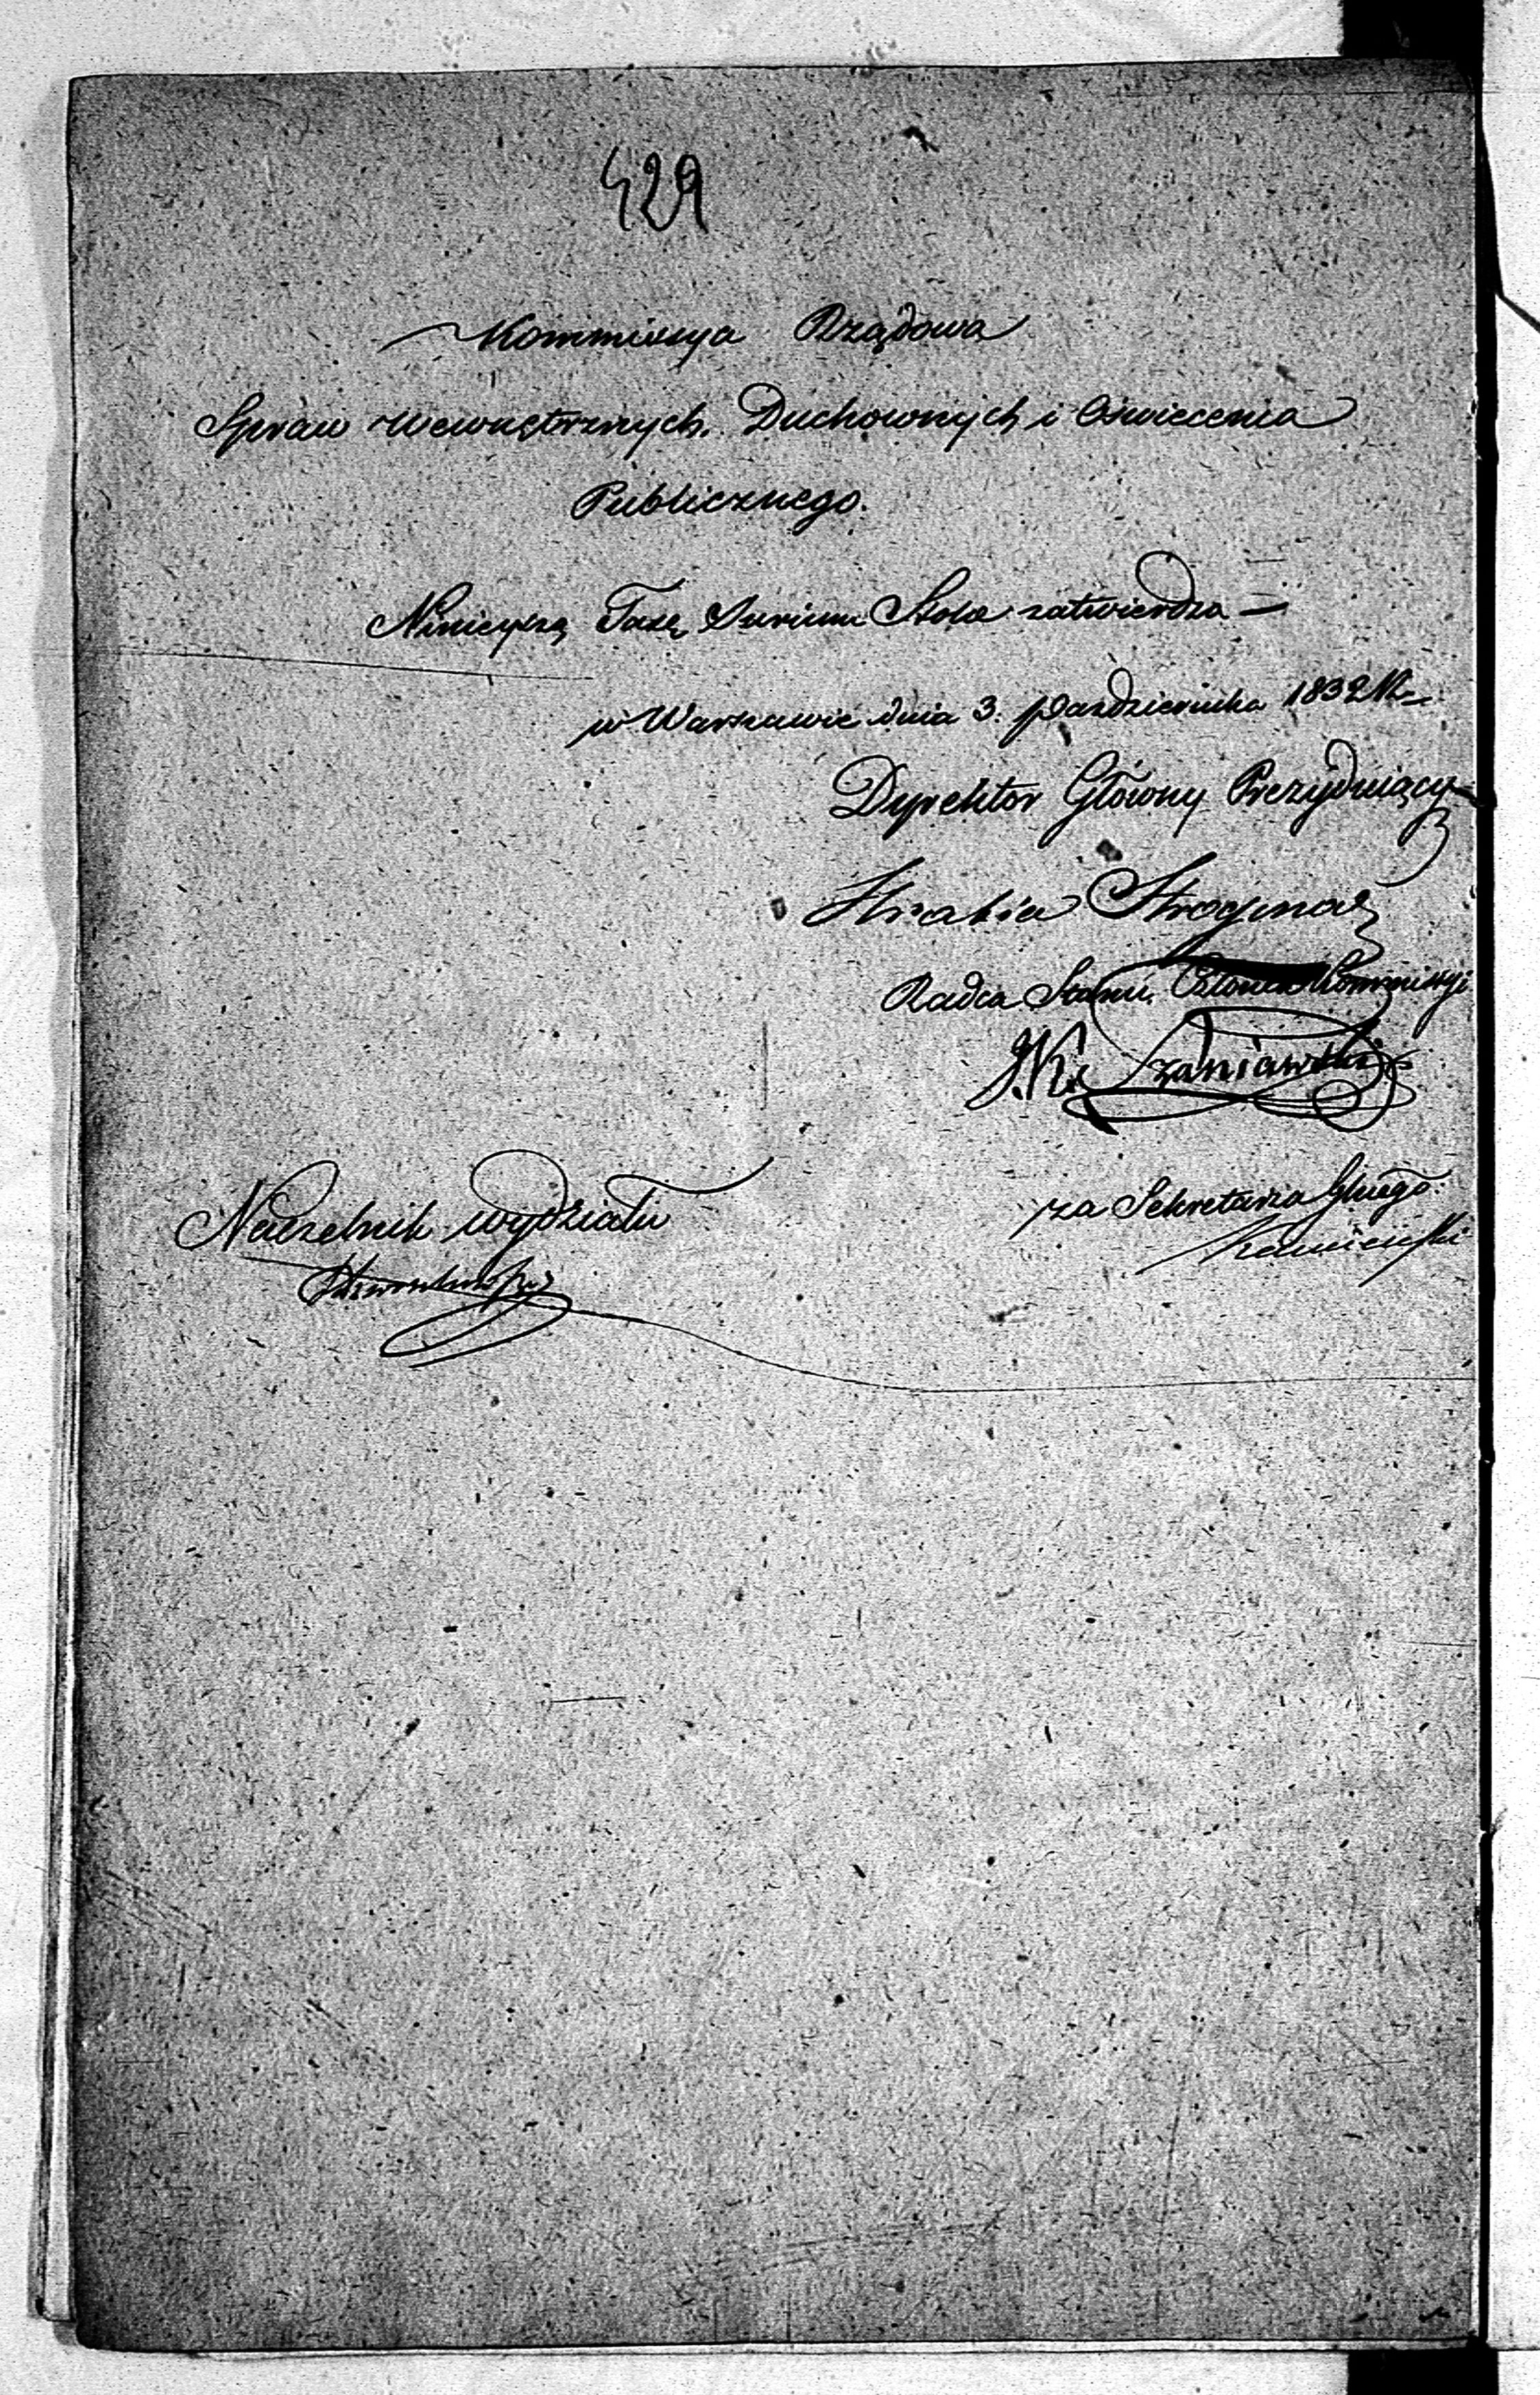 429
Kommissya Rządowa
Spraw Wewnętrznych, Duchownych i Oświecenia
Publicznego.
Ninieyszą Taxę Iurium Stolæ zatwierdza =
w Warszawie dnia 3. Października 1832 R.
Dyrektor Główny Prezyduiący
Hrabia Strogonow
Radca Stanu, Członek Kommissyi
J. K. Szaniawski
za Sekretarza Głnego.
Naczelnik Wydziału